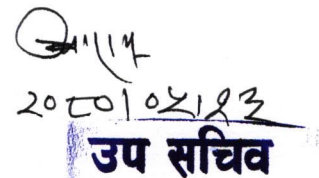 २०८०।०५।१३
उप सचिव